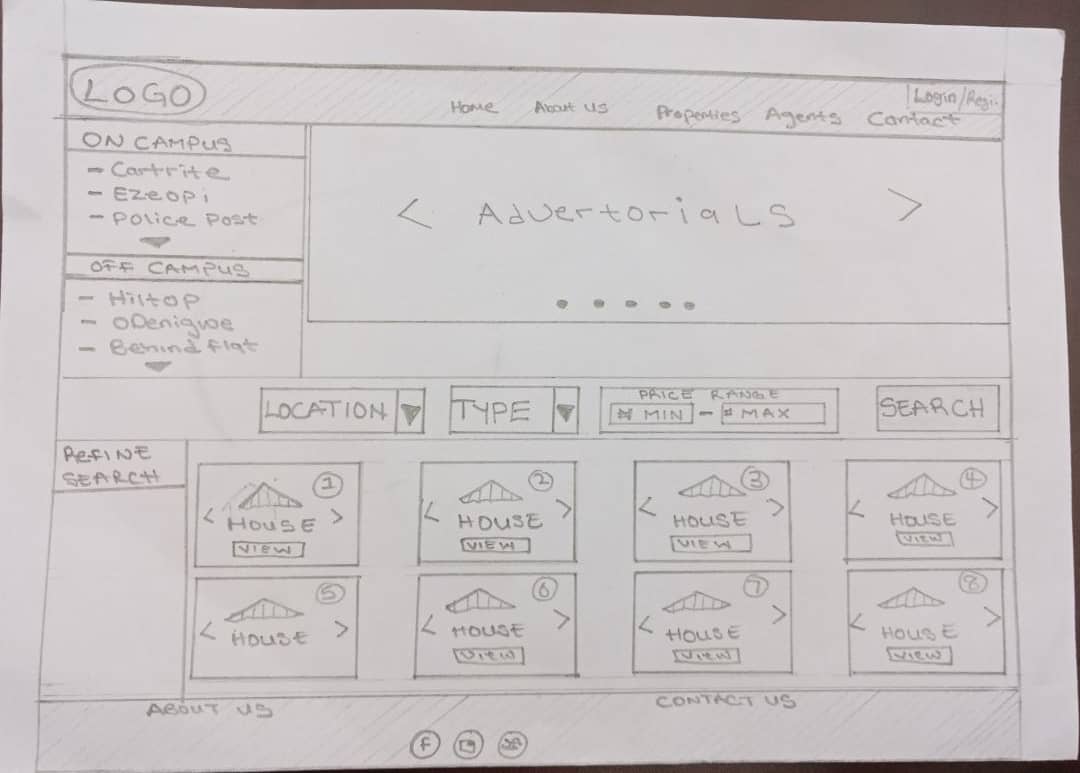 LOGO
Home About Us Properties Agents Contact
Login/Regi.
ON CAMPUS
- Cartrite
- Ezeopi
- Police Post
OFF CAMPUS
- Hiltop
- ODenigwe
- Behind flat
< AdvertoriaLS >
LOCATION
TYPE
PRICE RANGE
₦ MIN - ₦ MAX
SEARCH
REFINE
SEARCH
1
< HOUSE >
VIEW
2
< HOUSE >
VIEW
3
< HOUSE >
VIEW
4
< HOUSE >
VIEW
5
< HOUSE >
6
< HOUSE >
VIEW
7
< HOUSE >
VIEW
8
< HOUSE >
VIEW
ABOUT US
CONTACT US
f